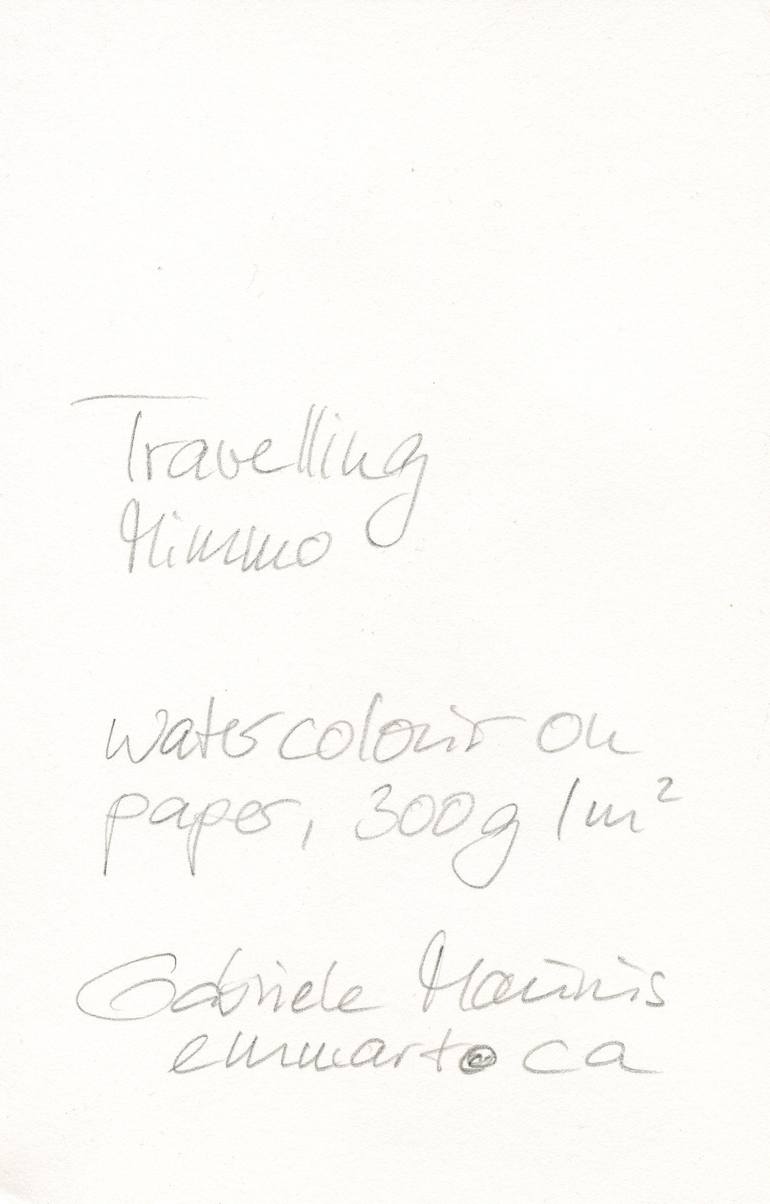 Travelling
Mimmo
watercolour on
paper, 300g/m²
Gabriele
emmart.ca